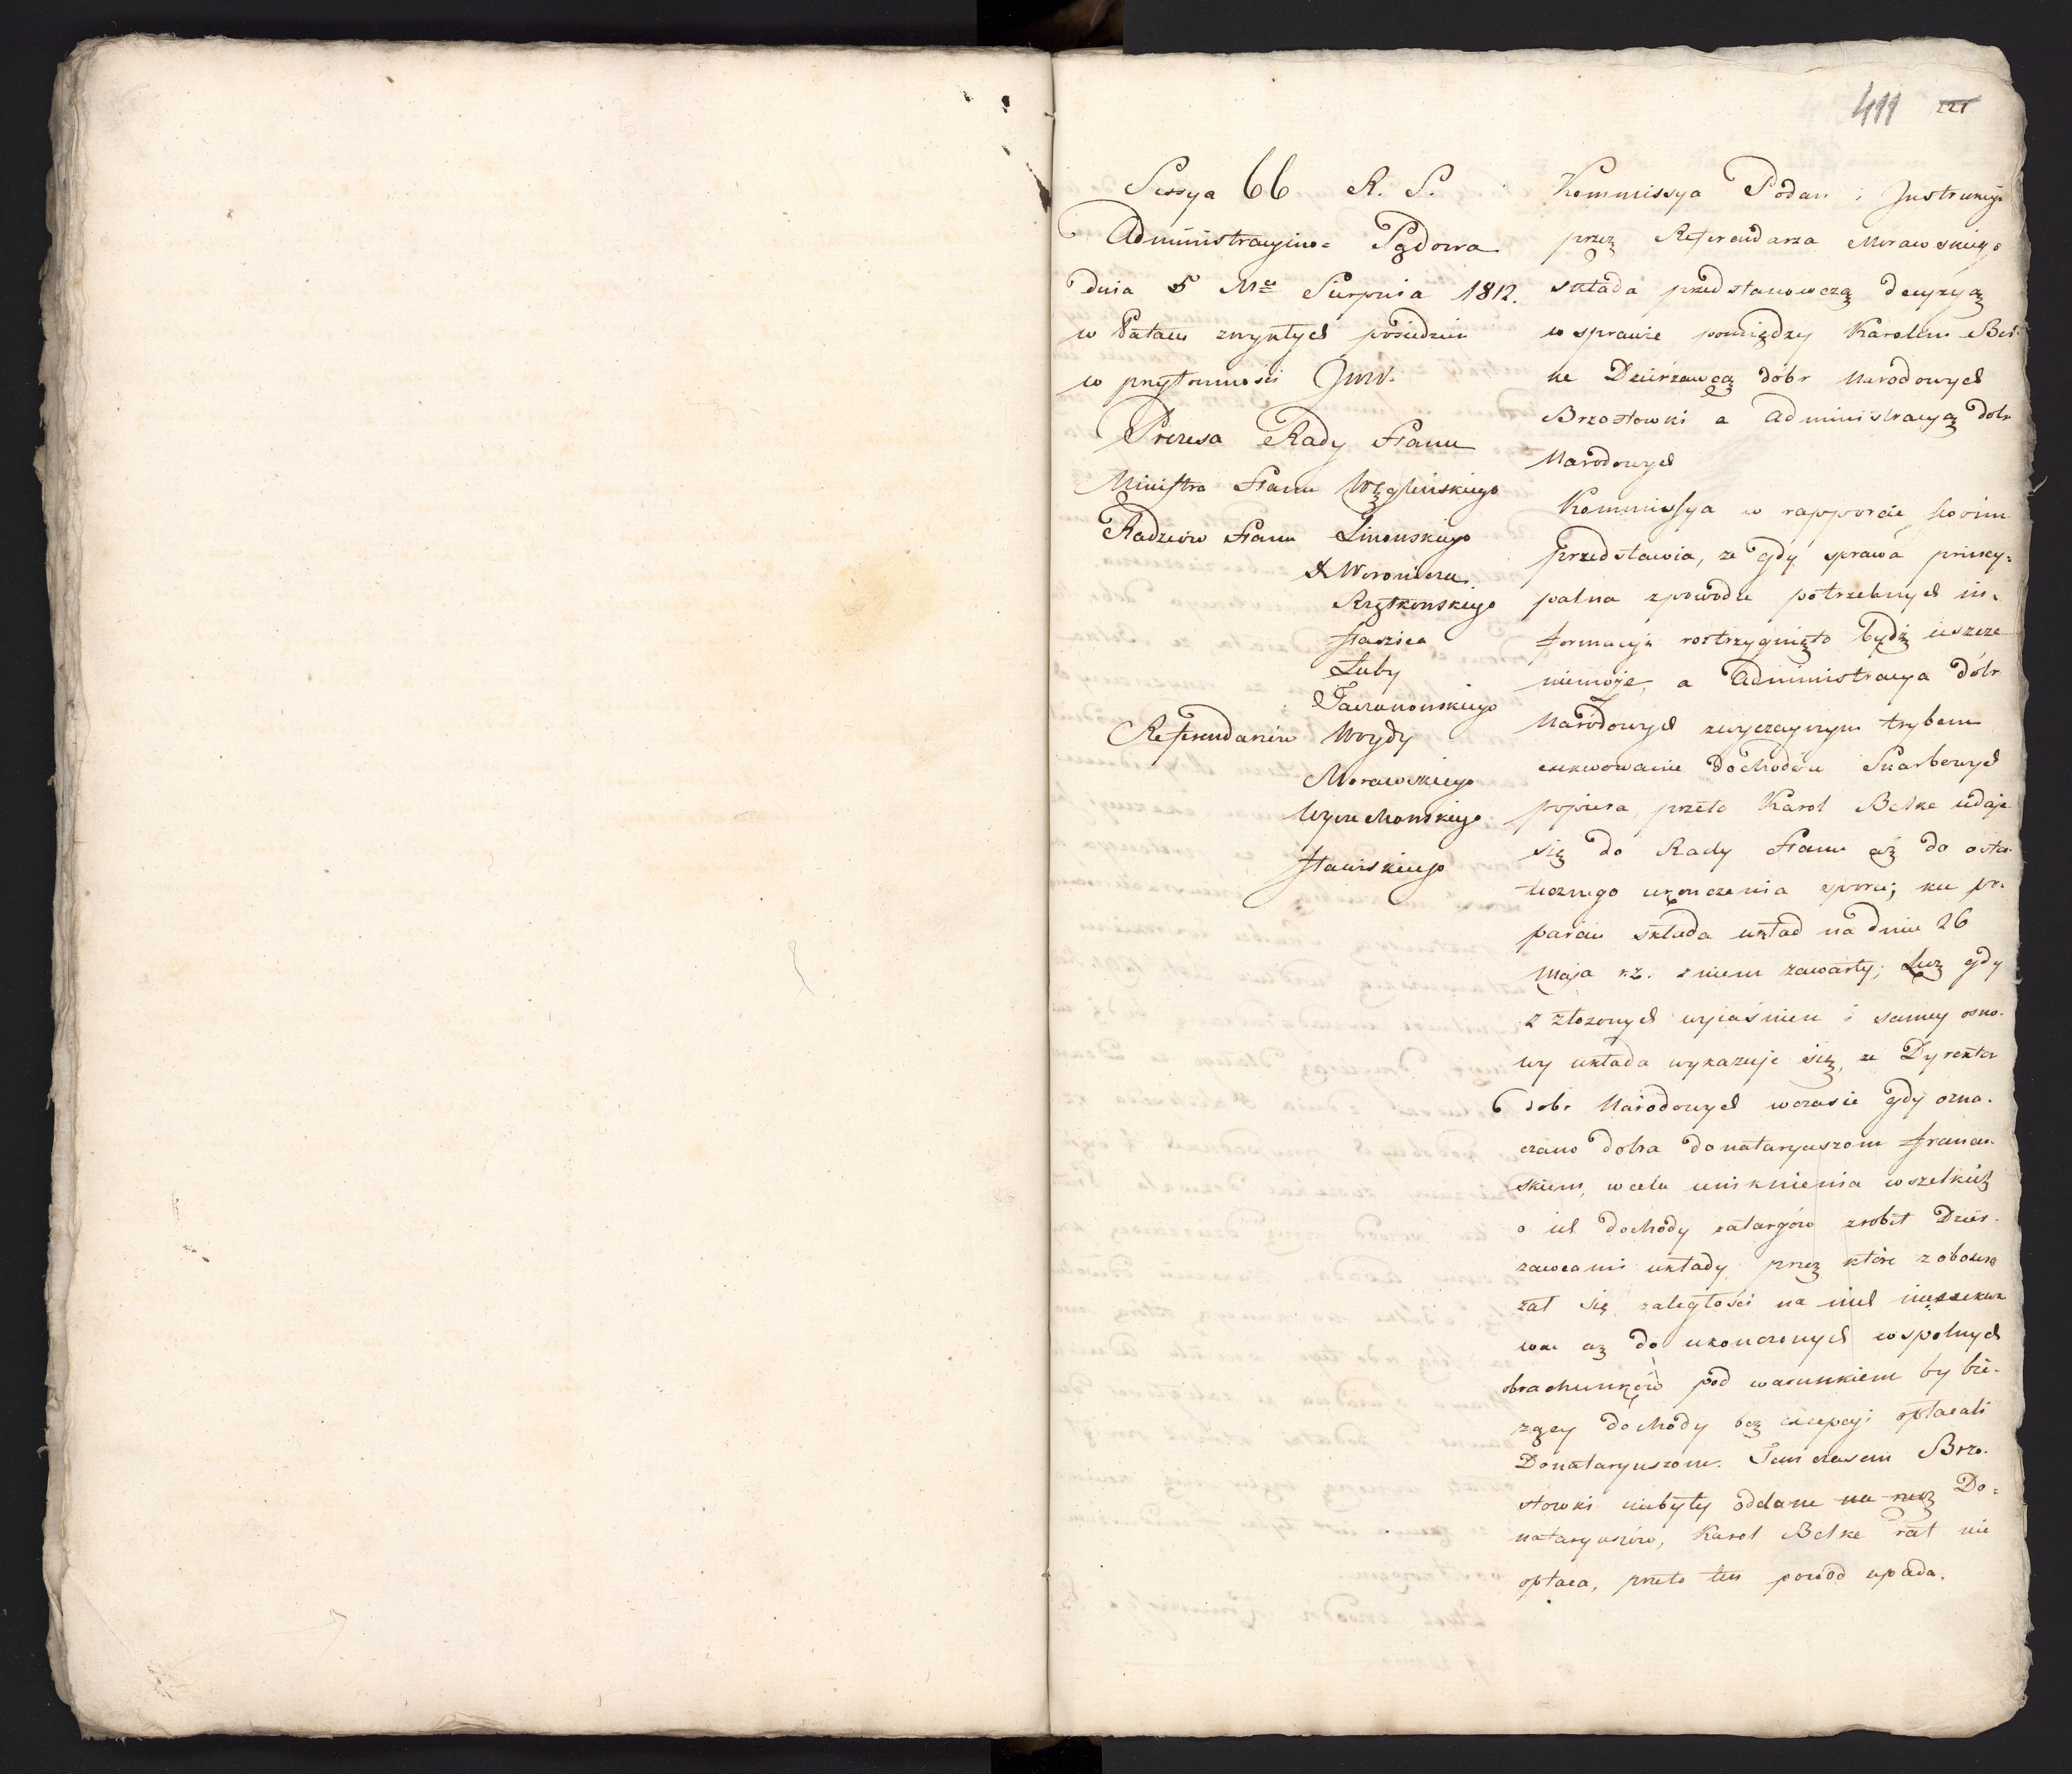 411 221
Sessya 66 R. S.
Administracyino= Sądowa
dnia 5 Mca Sierpnia 1812.
w Pałacu zwykłych posiedzeń
w przytomności JWW.
Prezesa Rady Stanu
Ministra Stanu Węglińskiego
Radzców Stanu Linowskiego
X Woronicza
Rzętkowskiego
Staszica
Łuby
Taczanowskiego
Referendarzów Woydy
Morawskiego
Wyczechowskiego
Stawiskiego
Kommissya Podań i Instrukcyi
przez Referendarza Morawskiego
składa przedstanowczą decyzyą
w sprawie pomiędzy Karolem Bel=
ke Dzierżawcą dóbr Narodowych
Brzostowki a Administracyą dobr
Narodowych
Kommissya w rapporcie swoim
przedstawia, że gdy sprawa princy=
palna z powodu potrzebnych in=
formacyi rostrzygnięto bydź ieszcze
niemoże, a Administracya dóbr
Narodowych zwyczaynym trybem
exekwowanie dochodów Skarbowych
popiera, przeto Karol Belke udaje
się do Rady Stanu aż do osta=
tecznego ukończenia sporu; ku po=
parciu składa układ na dniu 26
Maja r.z. z niem zawarty; Lecz gdy
z złożonych wyiaśnień i samey osno=
wy układu wykazuje się, że Dyrektor
dobr Narodowych w czasie gdy ozna=
czano dobra donataryuszom francu=
skiem, w celu uniknienia wszelkich
o ich dochody zatargów zrobił Dzier=
zawcami układy przez które zobowią
zał się zaległości na nich nieexekwo
wać aż do ukończonych wspolnych
obrachunków pod warunkiem by bie=
zący dochody bez excepcyi opłacali
Donataryuszom. Tem czasem Brzo=
stowki niebyły oddane na rzecz Do=
nataryuszów, Karol Belke rat nie
opłaca, przeto ten powod upada.